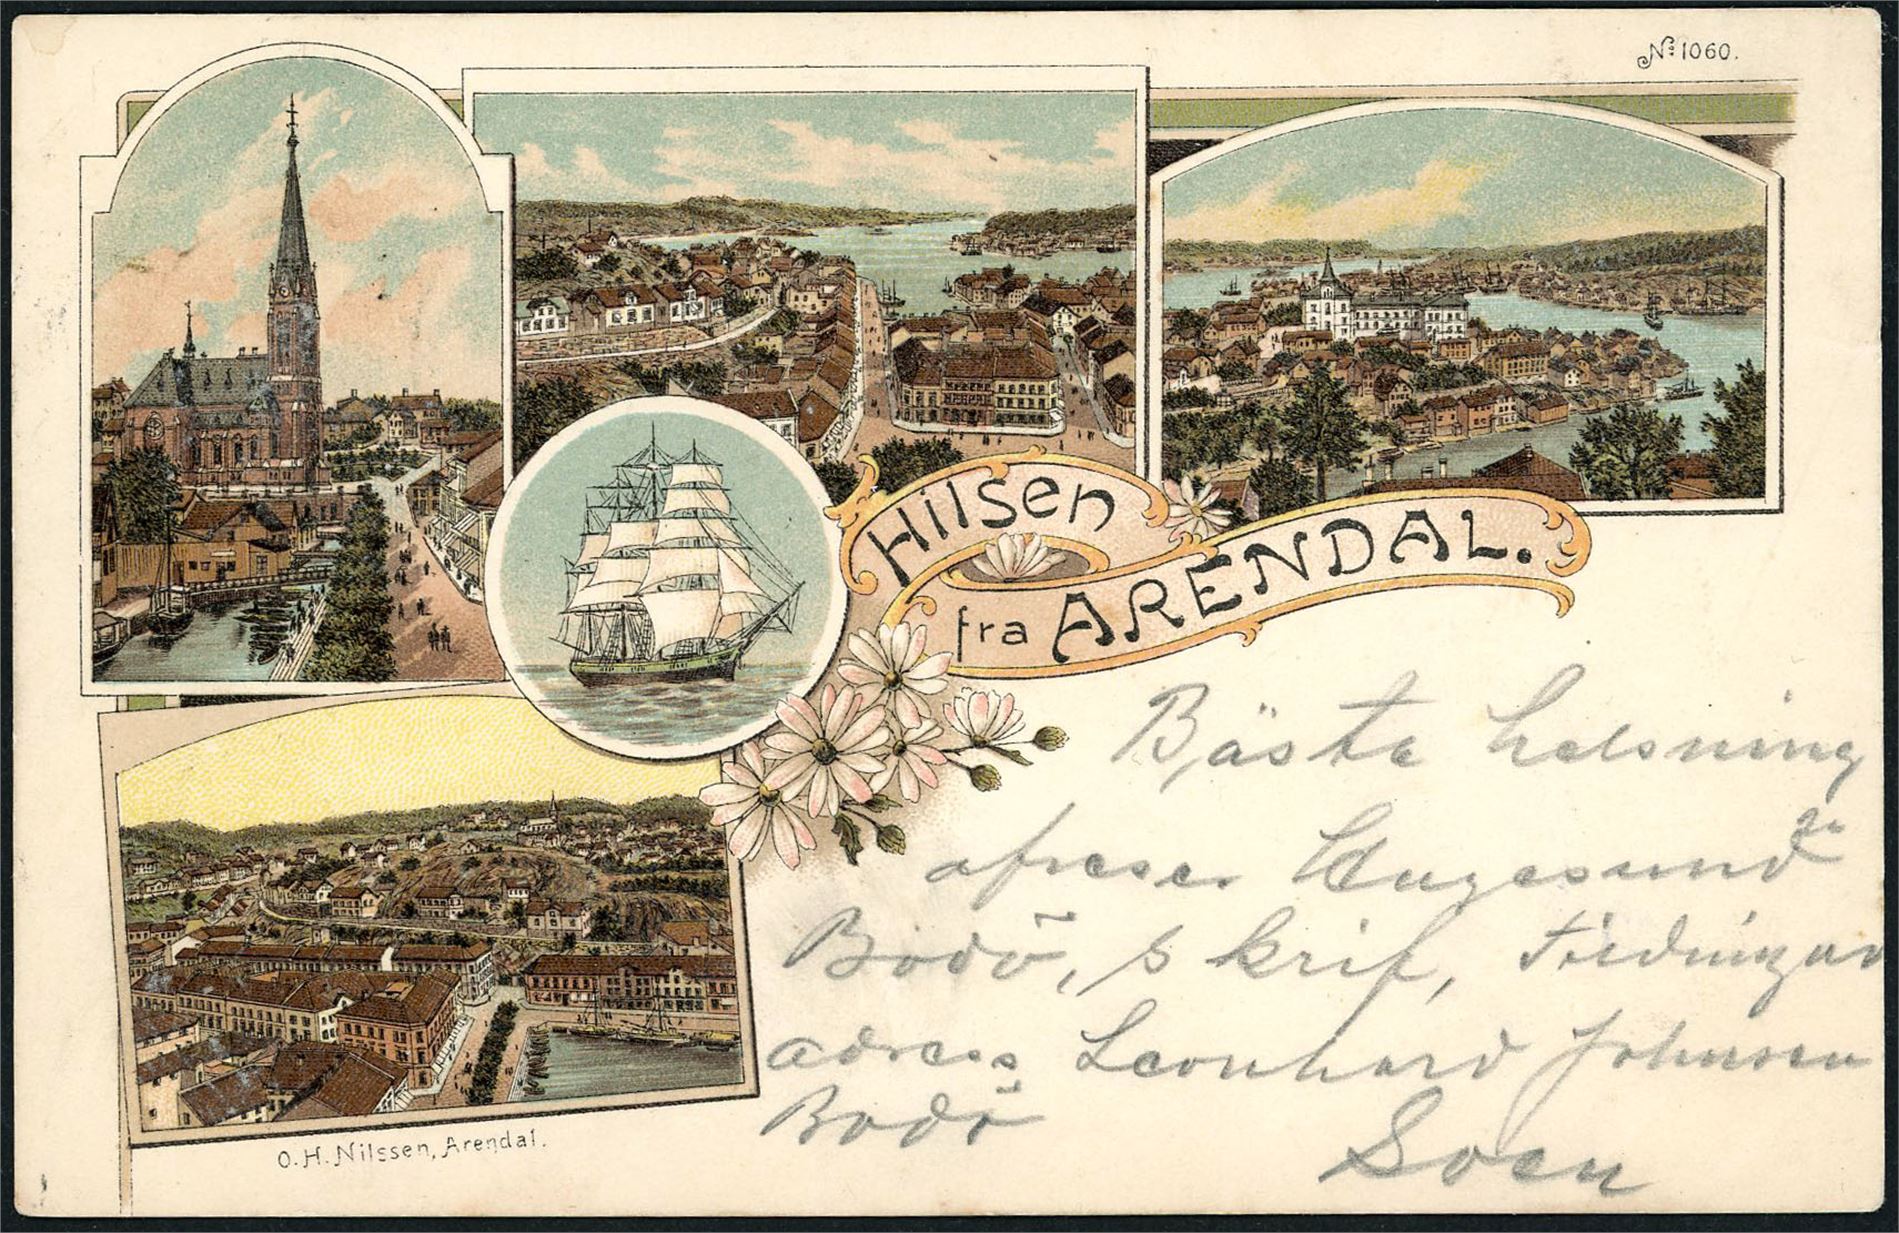 No 1060.
Hilsen
fra ARENDAL.
Bästa helsning
afreser Haugesund
Bodö, skrif, tidningar
adress Leonhard Johnsen
Bodö
Sven
O.H. Nilssen, Arendal.